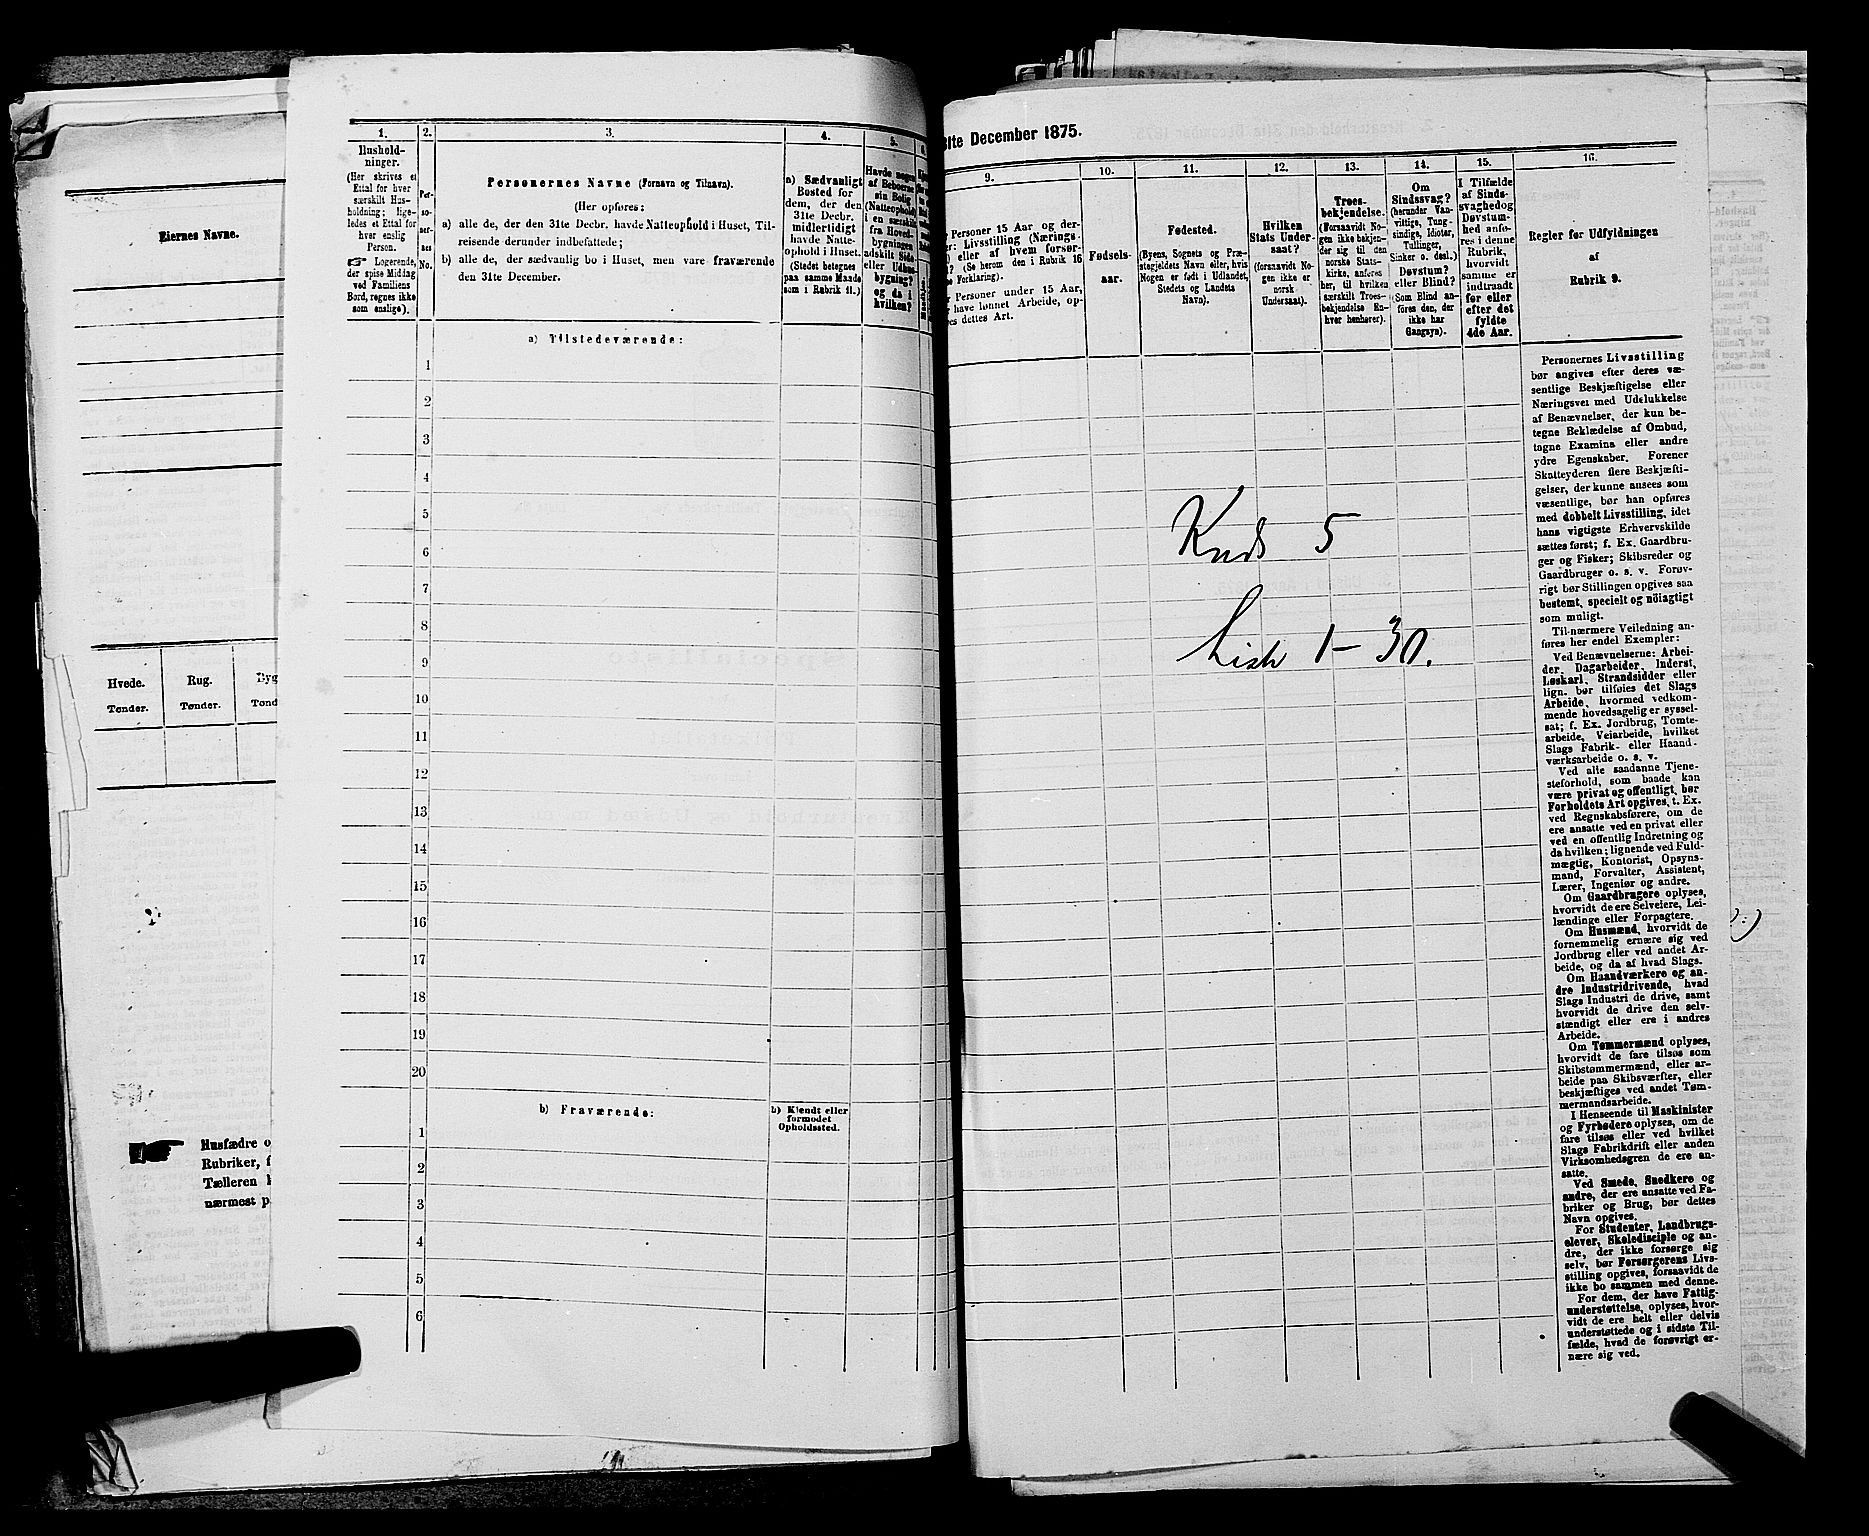 Eiernes Navne.
Hvede.
Tønder.
Rug.
Tønder.
Byg
Tønd
Husfædre o
Rubriker, f
Tælleren
nærmest p
1.
Hushold-
ninger.
(Her skrives et
Ettal for hver
særskilt Hus-
holdning; lige-
ledes et Ettal for
hver enslig
Person.
☞ Logerende,
der spise Middag
ved Familiens
Bord, regnes ikke
som enslige).
2.
Per-
so-
ner-
nes
No.
3.
Personernes Navne (Fornavn og Tilnavn).
(Her opføres:
a) alle de, der den 31te Decbr. havde Natteophold i Huset, Til-
reisende derunder indbefattede;
b) alle de, der sædvanlig bo i Huset, men vare fraværende
den 31te December.
4.
a) Sædvanligt
Bosted for
dem, der den
31te Decbr.
midlertidigt
havde Natte-
ophold i Huset.
(Stedet betegnes
paa samme Maade
som i Rubrik 11.)
5.
Havde nogen
af Beboerne
sin Bolig
(Natteophold)
i en særskilt
fra Hoved-
bygningen
adskilt Side-
eller Udhus-
bygning?
og da i
hvilken?
a) Tilstedeværende:
1
2
3
4
5
6
7
8
9
10
11
12
13
14
15
16
17
18
19
20
b) Fraværende:
b) Kjendt eller
formodet
Opholdssted.
1
2
3
4
5
6
31te December 1875.
9.
Personer 15 Aar og der-
er: Livsstilling (Nærings-
) eller af hvem forsør-
? (Se herom den i Rubrik 16
e Forklaring).
Personer under 15 Aar,
have lønnet Arbeide, op-
es dettes Art.
10.
Fødsels-
aar.
11.
Fødested.
(Byens, Sognets og Præ-
stegjeldets Navn eller, hvis
Nogen er født i Udlandet,
Stedets og Landets
Navn).
12.
Hvilken
Stats Under-
saat?
(forsaavidt No-
gen ikke er
norsk
Undersaat).
13.
Troes-
bekjendelse.
(Forsaavidt No-
gen ikke bekjen-
der sig til den
norske Stats-
kirke, anføres
her, til hvilken
særskilt Troes-
bekjendelse En-
hver henhører).
14.
Om
Sindssvag?
(herunder Van-
vittige, Tung-
sindige, Idioter,
Tullinger,
Sinker o. desl.)
Døvstum?
eller Blind?
(Som Blind an-
føres den, der
ikke har
Gangsyn).
15.
I Tilfælde
af Sinds-
svaghed og
Døvstum-
hed anfø-
res i denne
Rubrik,
hvorvidt
samme er
indtraadt
før eller
efter det
fyldte
4de Aar.
16.
Regler for Udfyldningen
af
Rubrik 9.
Knds 5
Liste 1-30.
Personernes Livsstilling
bør angives efter deres væ-
sentlige Beskjæftigelse eller
Næringsvei med Udelukkelse
af Benævnelser, der kun be-
tegne Beklædelse af Ombud,
tagne Examina eller andre
ydre Egenskaber. Forener
Skatteyderen flere Beskjæfti-
gelser, der kunne ansees som
væsentlige, bør han opføres
med dobbelt Livsstilling, idet
hans vigtigste Erhvervskilde
sættes først; f. Ex. Gaardbru-
ger og Fisker; Skibsreder og
Gaardbruger o. s. v. Forøv-
rigt bør Stillingen opgives saa
bestemt, specielt og nöiagtigt
som muligt.
Til nærmere Veiledning an-
føres her endel Exempler:
Ved Benævnelserne: Arbei-
der, Dagarbeider, Inderst,
Løskarl, Strandsidder eller
lign. bør tilføies det Slags
Arbeide, hvormed vedkom-
mende hovedsagelig er syssel-
sat; f. Ex. Jordbrug, Tomte-
arbeide, Veiarbeide, hvilket
Slags Fabrik- eller Haand-
værksarbeide o. s. v.
Ved alle saadanne Tjene-
steforhold, som baade kan
være privat og offentligt, bør
Forholdets Art opgives, t. Ex.
ved Regnskabsførere, om de
ere ansatte ved en privat eller
ved en offentlig Indretning og
da hvilken; lignende ved Fuld-
mægtig, Kontorist, Opsyns-
mand, Forvalter, Assistent,
Lærer, Ingeniør og andre.
Om Gaardbrugere oplyses,
hvorvidt de ere Selveiere, Lei-
lændinge eller Forpagtere.
Om Husmænd, hvorvidt de
fornemmelig ernære sig ved
Jordbrug eller ved andet Ar-
beide, og da af hvad Slags.
Om Haandværkere og an-
dre Industridrivende, hvad
Slags Industri de drive, samt
hvorvidt de drive den selv-
stændigt eller ere i andres
Arbeide.
Om Tømmermænd oplyses,
hvorvidt de fare tilsøs som
Skibstømmermænd, eller ar-
beide paa Skibsværfter, eller
beskjæftiges ved andet Tøm-
mermandsarbeide.
I Henseende til Maskinister
og Fyrbødere oplyses, om de
fare tilsøs eller ved hvilket
Slags Fabrikdrift eller anden
Virksomhedsgren de ere an-
satte.
Ved Smede, Snedkere og
andre, der ere ansatte ved Fa-
briker og Brug, bør dettes
Navn opgives.
For Studenter, Landbrugs-
elever, Skoledisciple og an-
dre, der ikke forsørge sig
selv, bør Forsørgerens Livs-
stilling opgives, forsaavidt de
ikke bo sammen med denne.
For dem, der have Fattig-
understøttelse, oplyses, hvor-
vidt de ere helt eller delvis
understøttede og i sidste Til-
fælde, hvad de forøvrigt er-
nære sig ved.